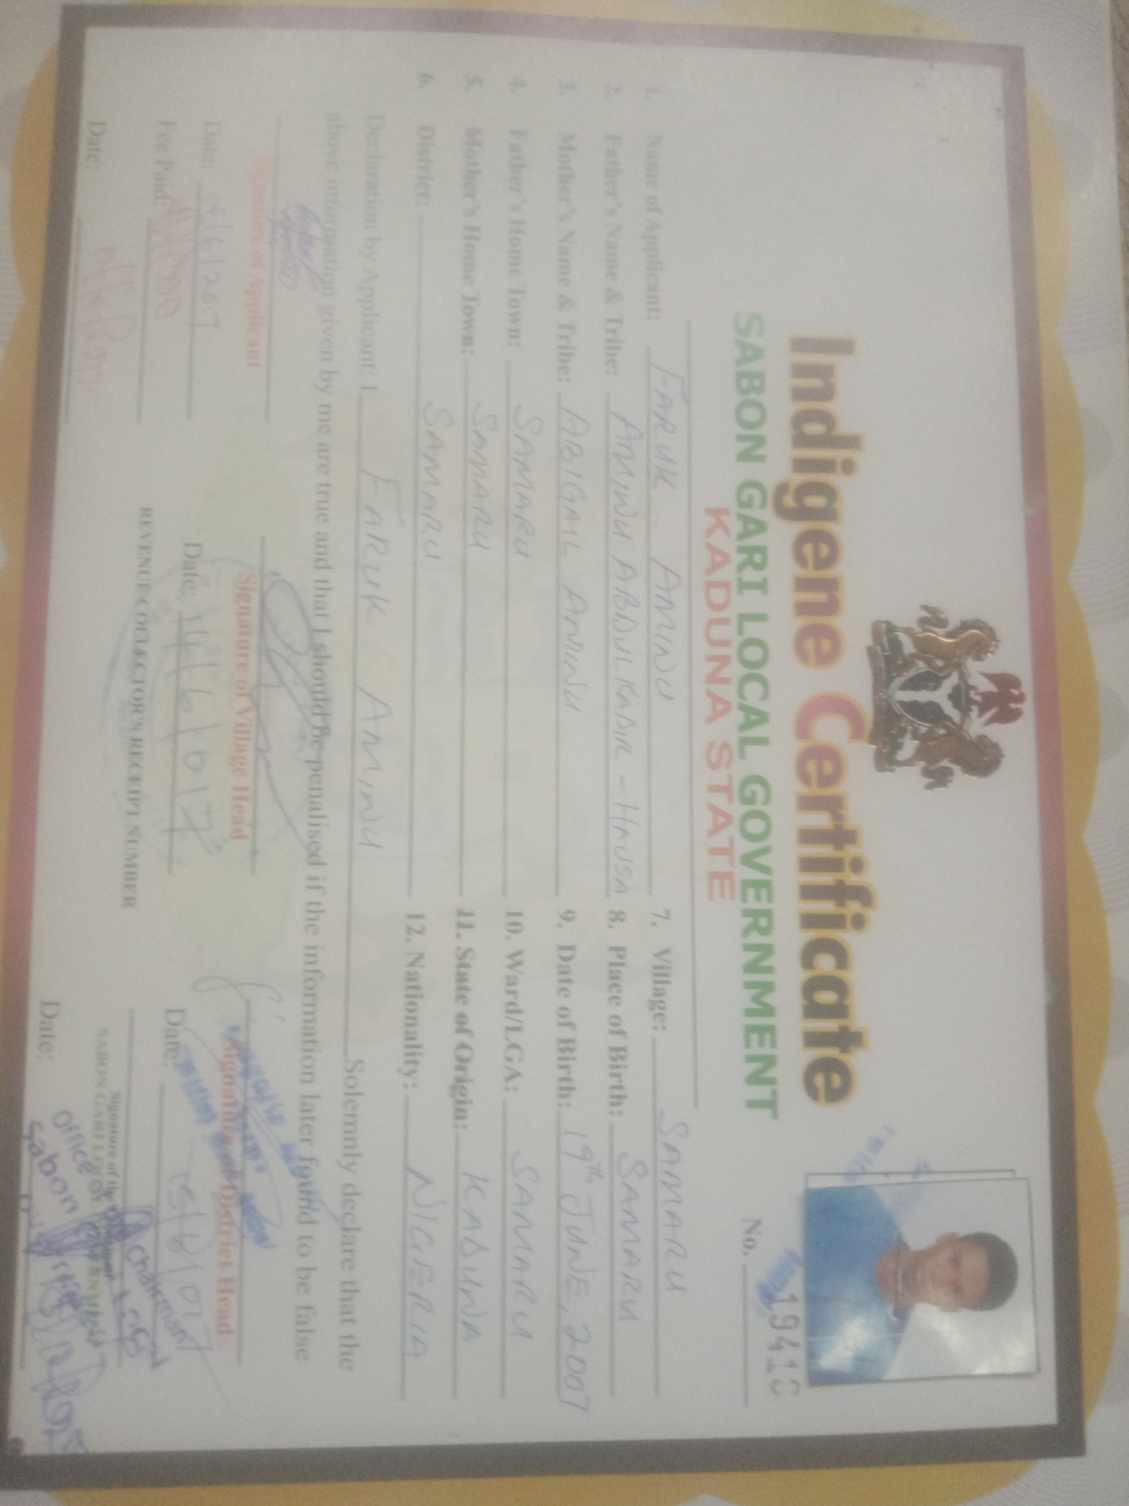 Indigene Certificate
SABON GARI LOCAL GOVERNMENT
KADUNA STATE
No. 1941
1. Name of Applicant: FARUK AMINU
2. Father's Name & Tribe: AMINU ABDULKADIR - HAUSA
3. Mother's Name & Tribe: ABIGAIL AMINU
4. Father's Home Town: SAMARU
5. Mother's Home Town: SAMARU
6. District: SAMARU
7. Village: SAMARU
8. Place of Birth: SAMARU
9. Date of Birth: 19th JUNE, 2007
10. Ward/LGA: SAMARU
11. State of Origin: KADUNA
12. Nationality: NIGERIA
Declaration by Applicant: I FARUK AMINU Solemnly declare that the
above information given by me are true and that I should be penalised if the information later found to be false
Signature of Applicant
Signature of Village Head
Signature of District Head
Date:
Date: 14/6/017
Date:
Fee Paid:
REVENUE COLLECTOR'S RECEIPT NUMBER
Signature of the
SABON GARI
Date:
Date:
Office
Sabon